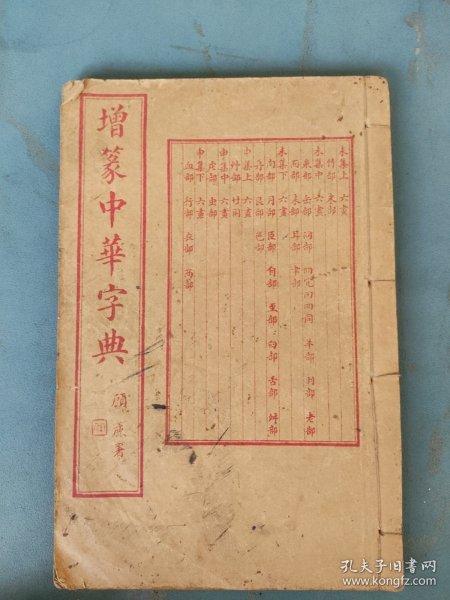 增篆中華字典
顧廉署
未集上 六畫
竹部 米部
未集中 六畫
糸部 缶部 网部 四冗罓罒同 羊部 羽部 老部
而部 耒部 耳部 聿部
未集下 六畫
肉部 月部 臣部 自部 至部 臼部 舌部 舛部
舟部 艮部 色部
申集上 六畫
艸部 艹同
申集中 六畫
虍部 虫部
申集下 六畫
血部 行部 衣部 襾部
孔夫子旧书网
www.kongfz.com